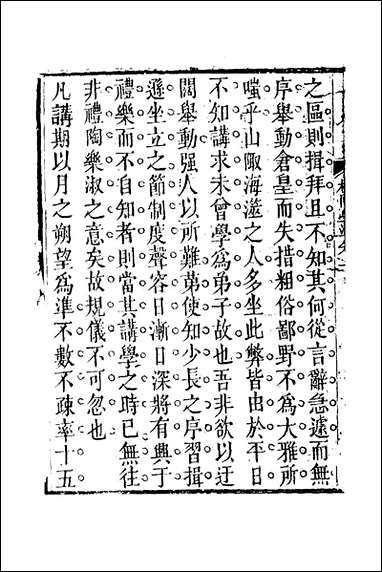 之區則揖拜且不知其何從言辭急遽而無
序舉動倉皇而失措粗俗鄙野不為大雅所
嗤乎山陬海澨之人多坐此弊皆由於平日
不知講求未曾學為弟子故也吾非欲以迂
闊舉動强人以所難弟使知少長之序習揖
遜坐立之節制度聲容日漸日深將有興于
禮樂而不自知者則當其講學之時已無往
非禮陶樂淑之意矣故規儀不可忽也
凡講期以月之朔望為準不數不疎率十五